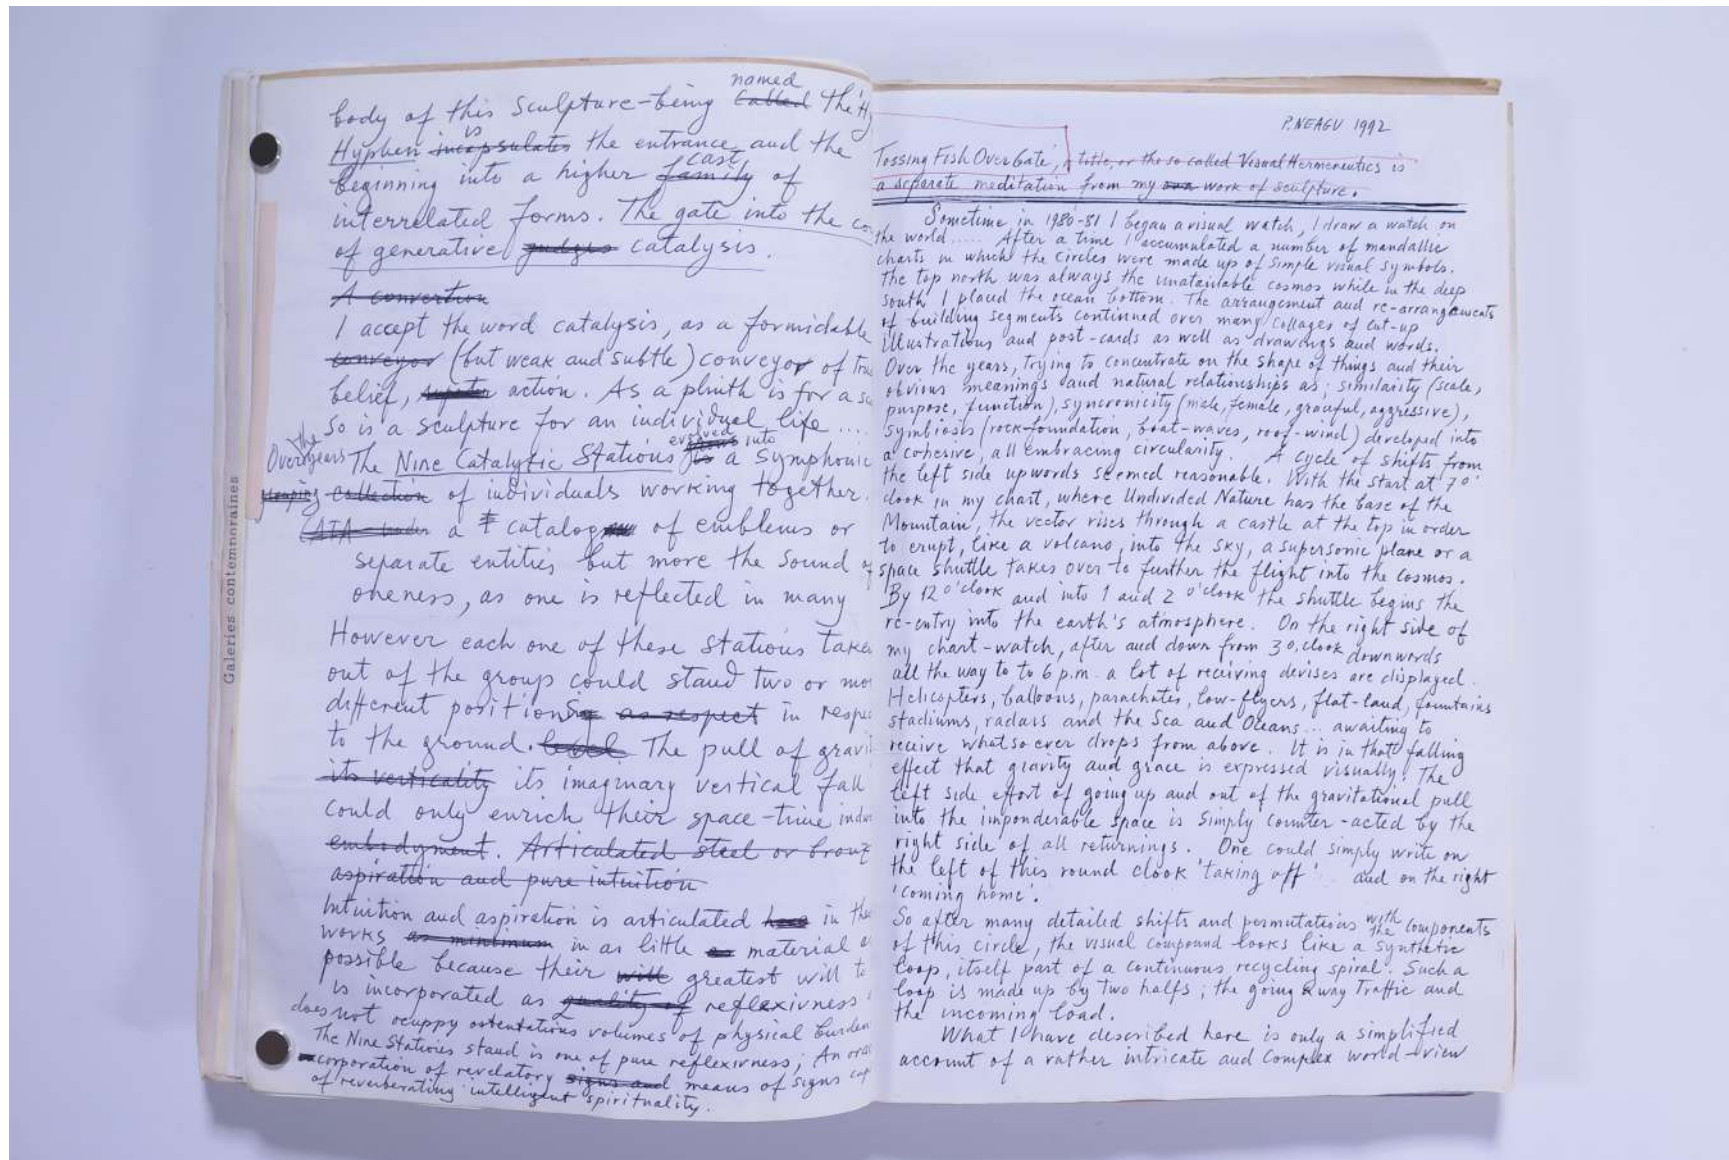 Galeries contemporaines
named
body of this sculpture-being called the H
Hyphen is incapsulates the entrance and the
beginning into a higher cast family of
interrelated forms. The gate into the co
of generative judges catalysis.
A convertion
I accept the word catalysis, as a formidable
conveyor (but weak and subtle) conveyor of tru
belief, action. As a plinth is for a sc
so is a sculpture for an individual life ....
Over the years The Nine Catalytic Stations evolved into is a symphonic
grouping collection of individuals working together.
a catalog of emblems or
separate entities but more the sound of
oneness, as one is reflected in many
However each one of these stations taken
out of the group could stand two or mor
different positions as respect in respec
to the ground. level The pull of gravi
its verticality its imaginary vertical fall
could only enrich their space-time indu
embodyment. Articulated steel or bronz
aspiration and pure intuition
Intuition and aspiration is articulated here in the
works as minimum in as little as material a
possible because their will greatest will to
is incorporated as quality of reflexivness
does not ocuppy ostentatious volumes of physical burden
The Nine Stations stand is one of pure reflexivness; An
corporation of revelatory signs and means of signs cap
of reverberating intelligent spirituality.
P. NEAGU 1992
Tossing Fish Over Gate, a title, or the so called Visual Hermeneutics is
a separate meditation from my own work of sculpture.
Sometime in 1980-81 I began a visual watch, I draw a watch on
the world ..... After a time I accumulated a number of mandallic
charts in which the circles were made up of simple visual symbols.
The top north was always the unatainable cosmos while in the deep
south I placed the ocean bottom. The arrangement and re-arrangements
of building segments continued over many collages of cut-up
illustrations and post-cards as well as drawings and words.
Over the years, trying to concentrate on the shape of things and their
obvious meanings and natural relationships as; similarity (scale,
purpose, function), syncronicity (male, female, graceful, aggressive),
symbiosis (rock-foundation, boat-waves, roof-wind) developed into
a cohesive, all embracing circularity. A cycle of shifts from
the left side upwords seemed reasonable. With the start at 7 o'
clook in my chart, where Undivided Nature has the base of the
Mountain, the vector rises through a castle at the top in order
to erupt, like a volcano, into the sky, a supersonic plane or a
space shuttle takes over to further the flight into the cosmos.
By 12 o'clook and into 1 and 2 o'clook the shuttle begins the
re-entry into the earth's atmosphere. On the right side of
my chart-watch, after and down from 3 o,clook downwords
all the way to to 6 p.m. a lot of receiving devises are displayed.
Helicopters, balloons, parachutes, low-flyers, flat-land, fountains
stadiums, radars and the Sea and Oceans... awaiting to
receive whatsoever drops from above. It is in that falling
effect that gravity and grace is expressed visually. The
left side effort of going up and out of the gravitational pull
into the imponderable space is simply counter-acted by the
right side of all returnings. One could simply write on
the left of this round clook 'taking off' .. and on the right
'coming home'.
So after many detailed shifts and permutations with the components
of this circle, the visual compound looks like a synthetic
loop, itself part of a continuous recycling spiral. Such a
loop is made up by two halfs; the going away traffic and
the incoming load.
What I have described here is only a simplified
account of a rather intricate and complex world-view